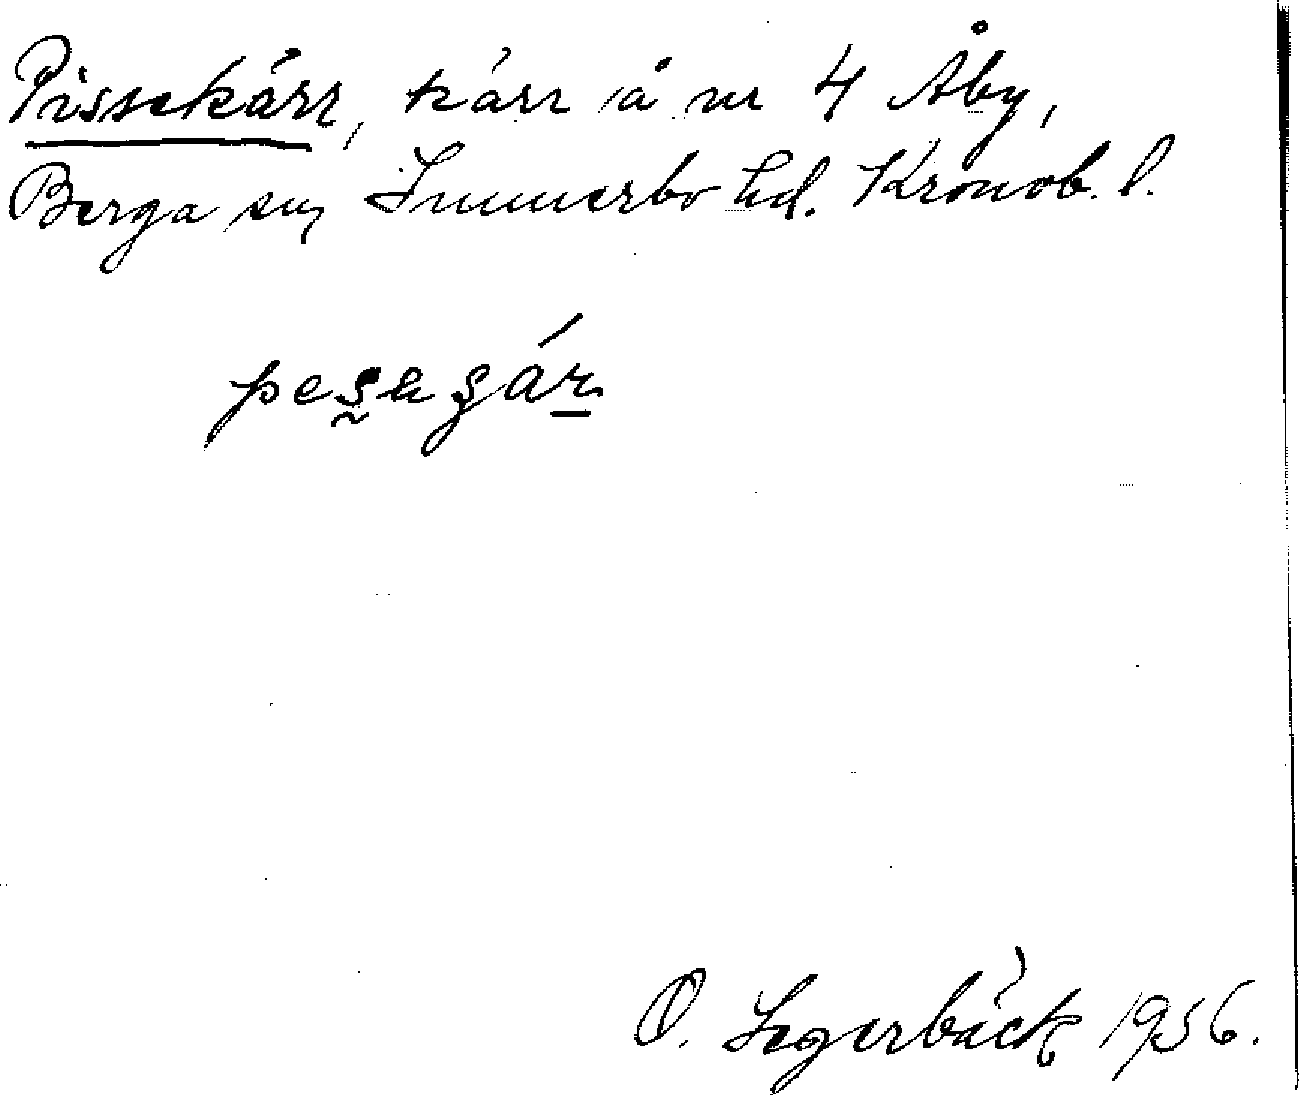 Pissekärr, kärr å nr 4 Åby,
Berga sn, Sunnerbo hd. Kronob. l.
O. Segerbäck 1956.